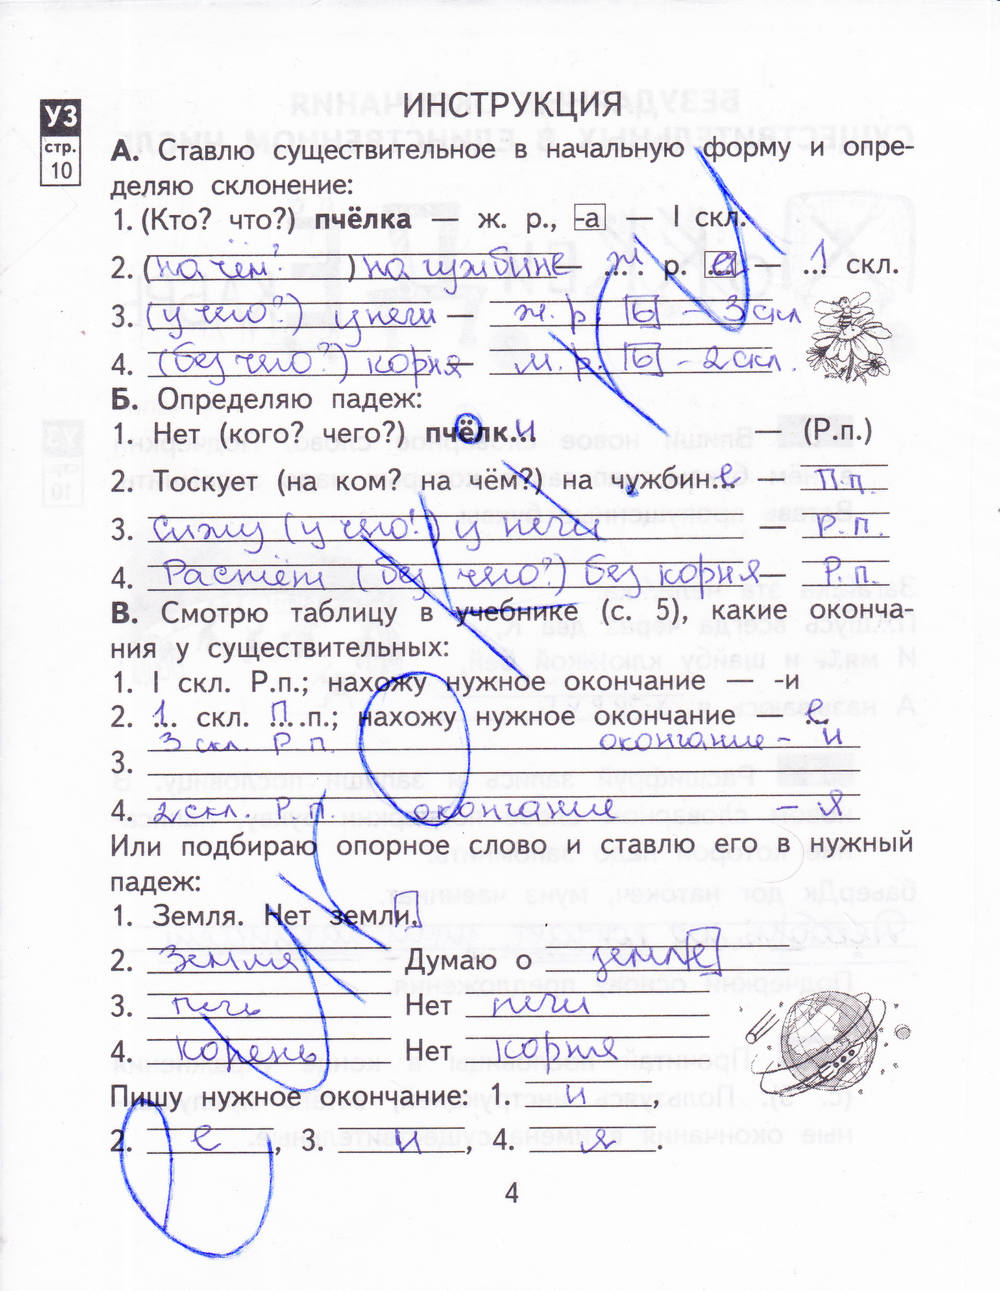 У3
стр.
10
ИНСТРУКЦИЯ
А. Ставлю существительное в начальную форму и опре-
деляю склонение:
1. (Кто? что?) пчёлка — ж. р., -а — I скл.
2. (на чём?) на чужбине — ж. р. а — 1 скл.
3. (у чего?) у печи — ж. р. ь - 3 скл
4. (без чего?) корня — м. р. ь - 2 скл.
Б. Определяю падеж:
1. Нет (кого? чего?) пчёлк..и — (Р.п.)
2. Тоскует (на ком? на чём?) на чужбин..е П.п.
3. Сижу (у чего?) у печи — Р.п.
4. Растёт (без чего?) без корня — Р.п.
В. Смотрю таблицу в учебнике (с. 5), какие оконча-
ния у существительных:
1. I скл. Р.п.; нахожу нужное окончание — -и
2. 1. скл. П..п.; нахожу нужное окончание — е
3. 3 скл. Р.п. окончание - и
4. 2 скл. Р.п окончание - я
Или подбираю опорное слово и ставлю его в нужный
падеж:
1. Земля. Нет земли.
2. Земля Думаю о земле
3. печь Нет печи
4. корень Нет корня
Пишу нужное окончание: 1. и,
2. е, 3. и, 4. я.
4